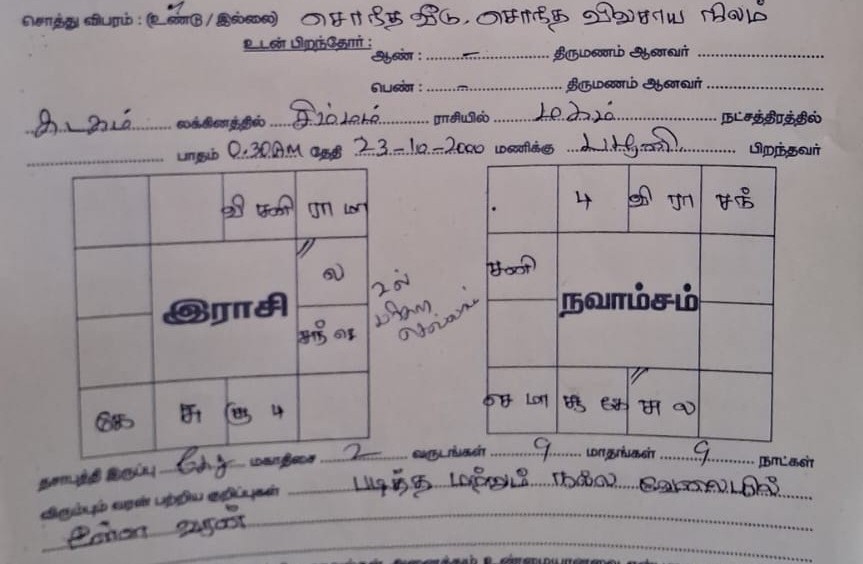 சொத்து விபரம் : (உண்டு / இல்லை) சொந்த வீடு, சொந்த விவசாய நிலம்
உடன் பிறந்தோர் :
ஆண் : – திருமணம் ஆனவர்
பெண் : – திருமணம் ஆனவர்
கடகம் லக்கினத்தில் சிம்மம் ராசியில் மகம் நட்சத்திரத்தில்
பாதம் 0.30AM தேதி 23-10-2000 மணிக்கு பழனி பிறந்தவர்
வி சனி ரா மா
ல
இராசி
சந் செ
கே சு சூ பு
2ல்
செல்வம்
பு வி ரா சந்
சனி
நவாம்சம்
செ மா சூ கே சு ல
தசாபுத்தி இருப்பு கேது மகாதிசை 2 வருடங்கள் 9 மாதங்கள் 9 நாட்கள்
விரும்பும் வரன் பற்றிய குறிப்புகள் படித்த மற்றும் நல்ல வேலையில்
உள்ள வரன்